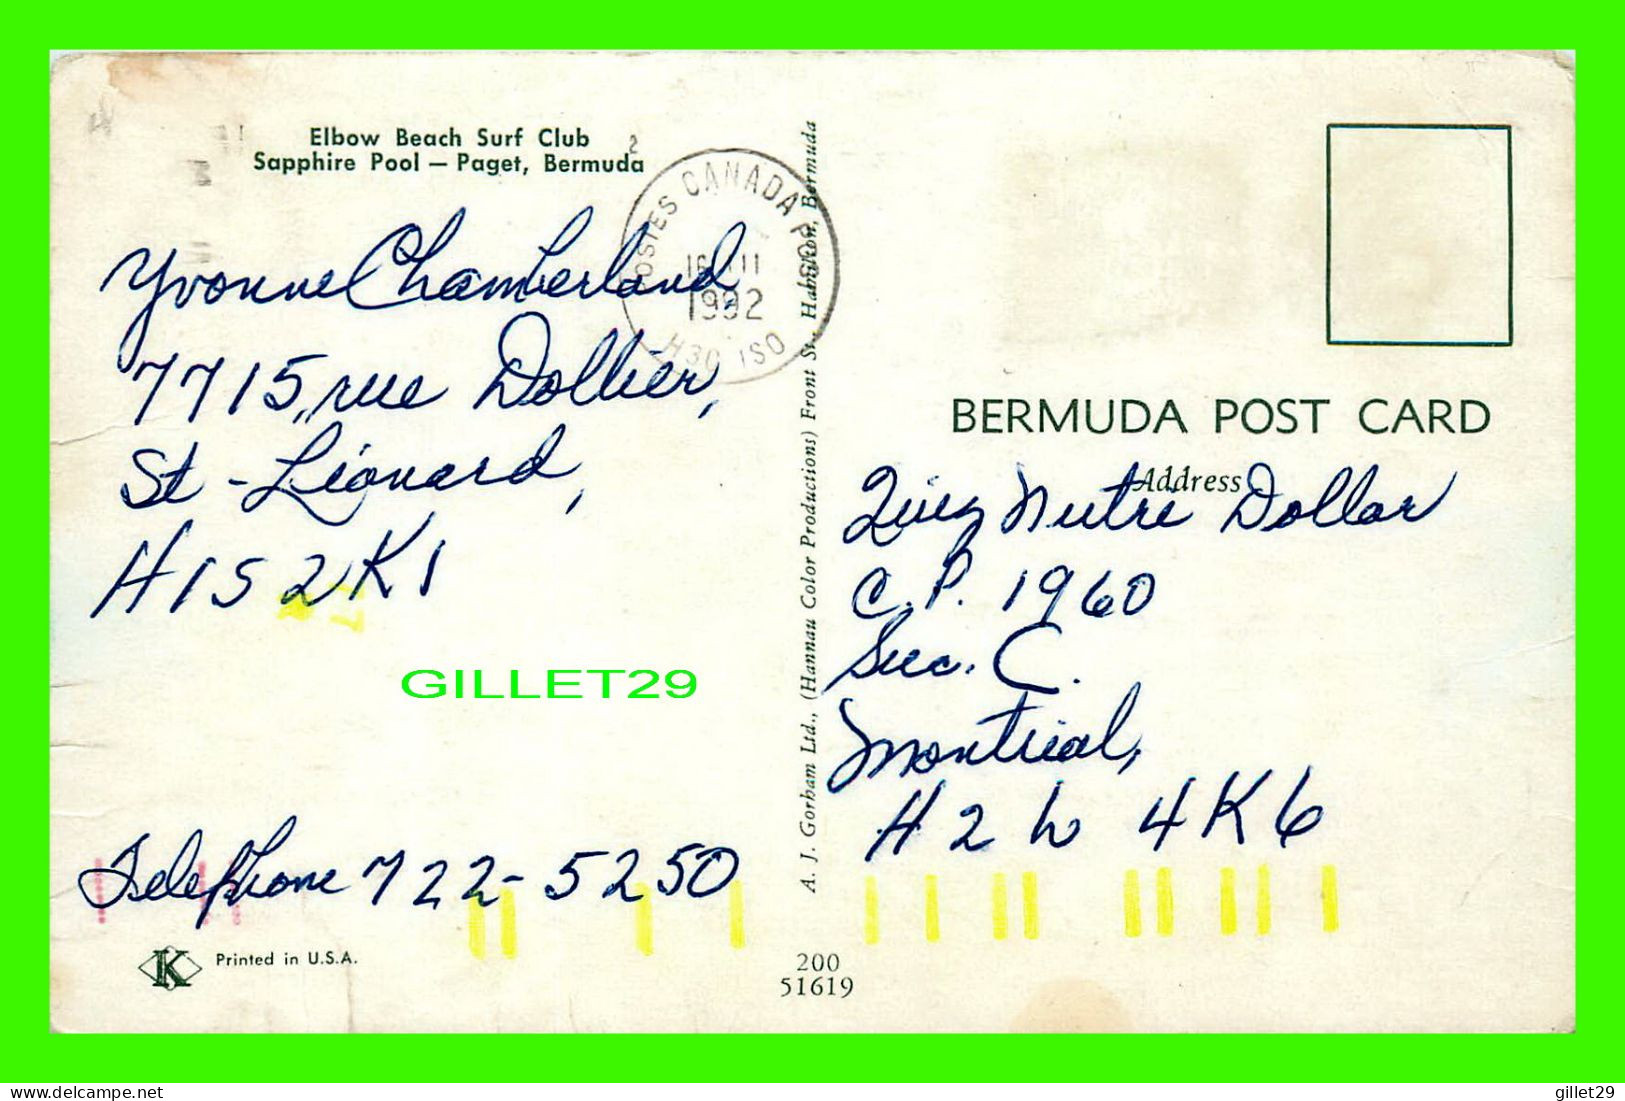 Elbow Beach Surf Club
Sapphire Pool — Paget, Bermuda
POSTES CANADA POST
1992
Yvonne Chamberland,
7715, rue Dollier,
St-Léonard,
H1S 2K1
GILLET29
Telephone 722-5250
K Printed in U.S.A.
A. J. Gorham Ltd., (Hannau Color Productions) Front St., Hamilton, Bermuda
200
51619
BERMUDA POST CARD
Address
Quiz Nutri Dollar
C.P. 1960
Suc. C.
Montréal,
H2L 4K6
gillet29